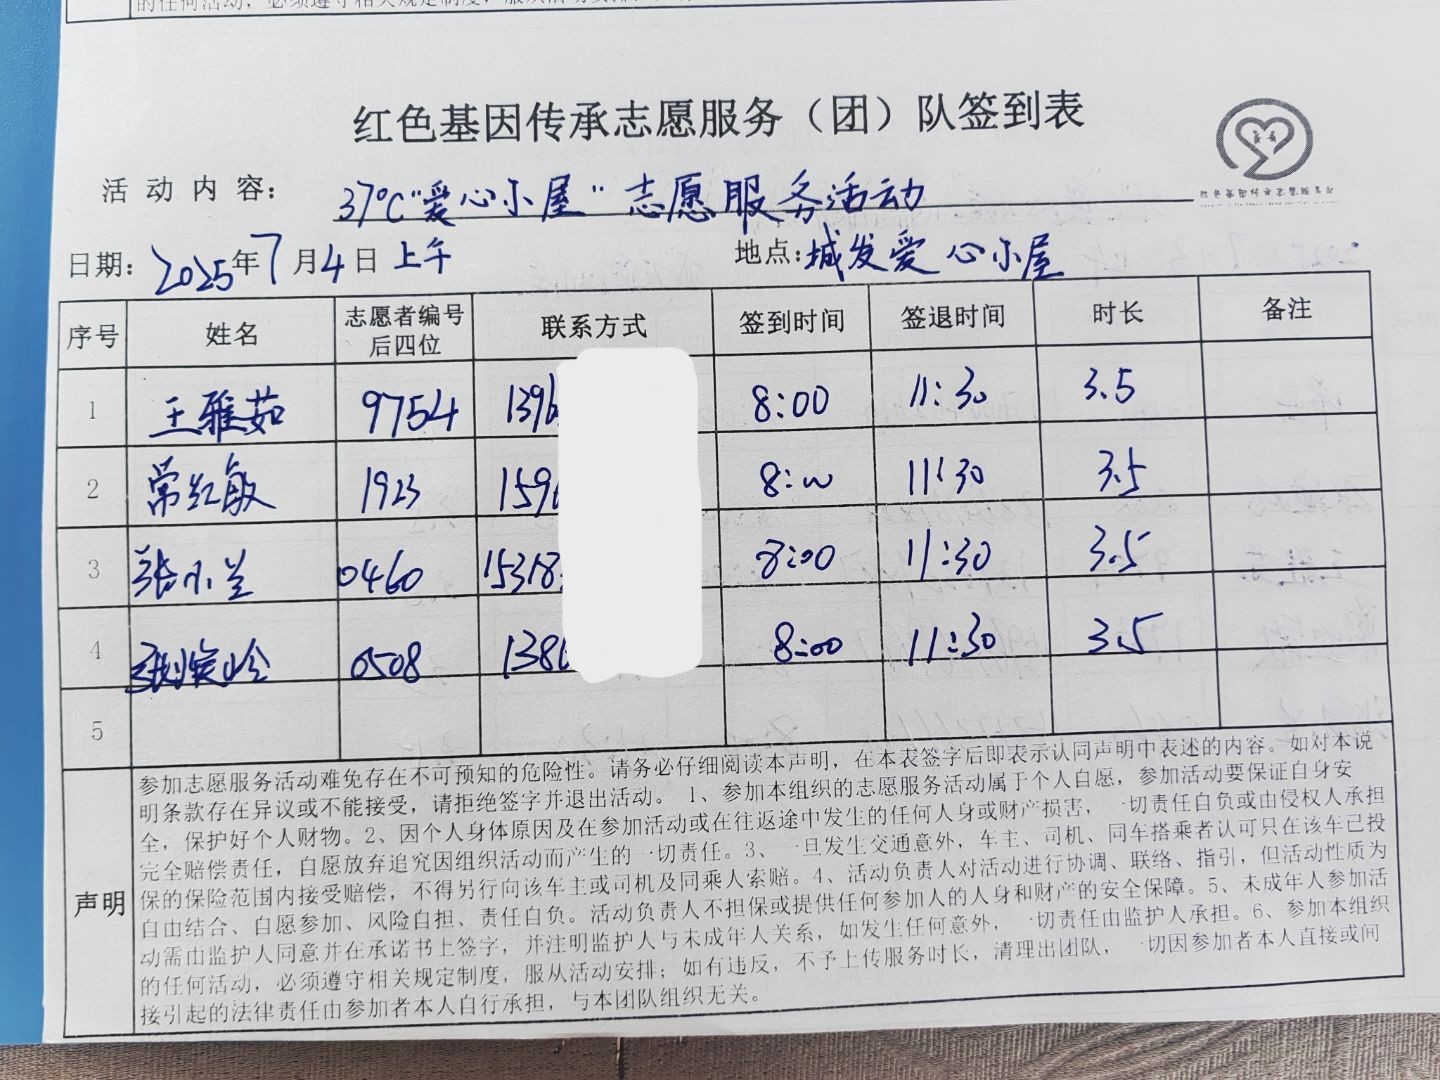 的任何活动，必须遵守相关规定制度，服从活动安排
红色基因传承志愿服务（团）队签到表
活动内容： 37℃"爱心小屋"志愿服务活动
日期：2025年7月4日上午 地点：城发爱心小屋
序号 姓名 志愿者编号后四位 联系方式 签到时间 签退时间 时长 备注
1 王雅茹 9754 1396 8:00 11:30 3.5
2 常红敏 1923 1590 8:00 11:30 3.5
3 张小兰 0460 15318 8:00 11:30 3.5
4 张 岭 0508 1386 8:00 11:30 3.5
5
声明
参加志愿服务活动难免存在不可预知的危险性。请务必仔细阅读本声明，在本表签字后即表示认同声明中表述的内容。如对本说
明条款存在异议或不能接受，请拒绝签字并退出活动。 1、参加本组织的志愿服务活动属于个人自愿，参加活动要保证自身安
全，保护好个人财物。2、因个人身体原因及在参加活动或在往返途中发生的任何人身或财产损害，一切责任自负或由侵权人承担
完全赔偿责任，自愿放弃追究因组织活动而产生的一切责任。3、一旦发生交通意外，车主、司机、同车搭乘者认可只在该车已投
保的保险范围内接受赔偿，不得另行向该车主或司机及同乘人索赔。4、活动负责人对活动进行协调、联络、指引，但活动性质为
自由结合、自愿参加、风险自担、责任自负。活动负责人不担保或提供任何参加人的人身和财产的安全保障。5、未成年人参加活
动需由监护人同意并在承诺书上签字，并注明监护人与未成年人关系，如发生任何意外，一切责任由监护人承担。6、参加本组织
的任何活动，必须遵守相关规定制度，服从活动安排；如有违反，不予上传服务时长，清理出团队，一切因参加者本人直接或间
接引起的法律责任由参加者本人自行承担，与本团队组织无关。